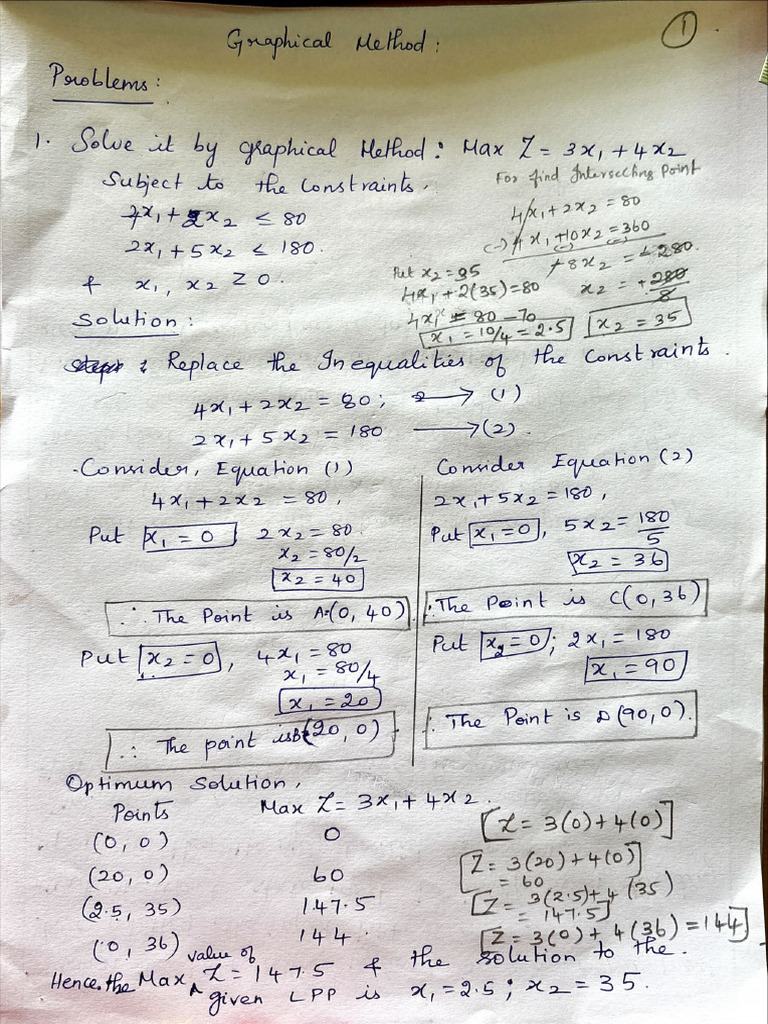 1
Graphical Method:
Problems:
1. Solve it by graphical Method: Max Z = 3x₁ + 4x₂
Subject to the constraints,
4x₁ + 2x₂ ≤ 80
2x₁ + 5x₂ ≤ 180.
& x₁, x₂ ≥ 0.
For find Intersecting Point
4x₁ + 2x₂ = 80
(-) 4x₁ + 10x₂ = 360
(-) (-)
-8x₂ = -280.
x₂ = +280/8
x₂ = 35
Put x₂ = 35
4x₁ + 2(35) = 80
4x₁ = 80 - 70
x₁ = 10/4 = 2.5
Solution:
Replace the Inequalities of the constraints.
4x₁ + 2x₂ = 80; → (1)
2x₁ + 5x₂ = 180 → (2).
Consider, Equation (1)
4x₁ + 2x₂ = 80,
Put x₁ = 0 2x₂ = 80.
x₂ = 80/2
x₂ = 40
∴ The Point is A=(0, 40)
Put x₂ = 0, 4x₁ = 80
x₁ = 80/4
x₁ = 20
∴ The point is B=(20, 0)
Consider Equation (2)
2x₁ + 5x₂ = 180,
Put x₁ = 0, 5x₂ = 180/5
x₂ = 36
∴ The Point is C(0, 36)
Put x₂ = 0; 2x₁ = 180
x₁ = 90
∴ The Point is D(90, 0).
Optimum Solution,
Points Max Z = 3x₁ + 4x₂.
(0, 0) 0 [Z = 3(0) + 4(0)]
(20, 0) 60 [Z = 3(20) + 4(0)] = 60
(2.5, 35) 147.5 [Z = 3(2.5) + 4(35) = 147.5]
(0, 36) 144. [Z = 3(0) + 4(36) = 144]
Hence the Max value of Z = 147.5 & the solution to the.
given LPP is x₁ = 2.5; x₂ = 35.